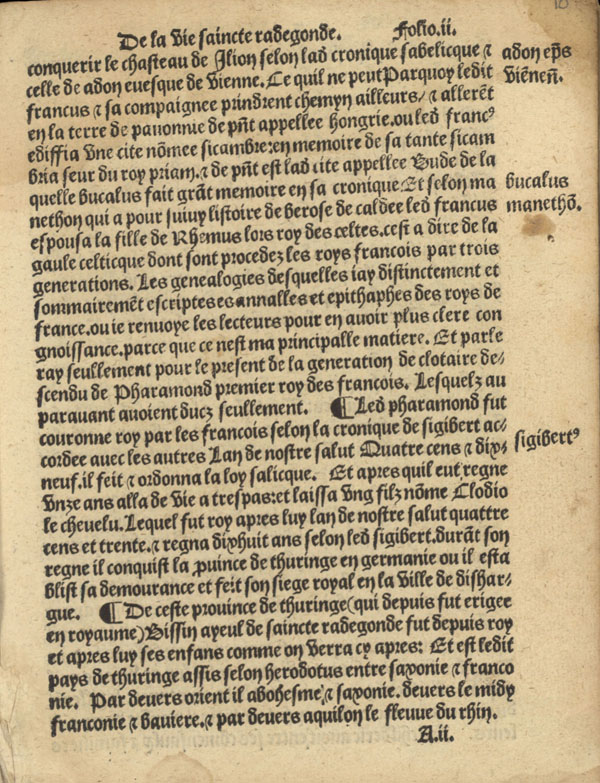 De la vie saincte radegonde. Folio.ii.
conquerir le chasteau de Ilion selon lad cronique sabelicque ⁊
celle de adon euesque de vienne. Ce quil ne peut Parquoy ledit
francus ⁊ sa compaignee prindrent chemyn ailleurs/ ⁊ allerẽt
en la terre de pauonnie de pñt appellee hongrie. ou led francꝰ
ediffia vne cite nõmee sicambre: en memoire de sa tante sicam
bria seur du roy priam. ⁊ de pñt est lad cite appellee Bude de la
quelle bucalus fait grãt memoire en sa cronique. Et selon ma
nethon qui a pour suiuy listoire de berose de caldee led francus
espousa la fille de Rhemus lors roy des celtes. cest a dire de la
gaule celticque dont sont procedez les roys francois par trois
generations. Les genealogies desquelles iay distinctement et
sommairemẽt escriptes es annalles et epithaphes des roys de
france. ou ie renuoye les lecteurs pour en auoir plus clere con
gnoissance. parce que ce nest ma principalle matiere. Et parle
ray seullement pour le present de la generation de clotaire de/
scendu de Pharamond premier roy des francois. Lesquelz au
parauant auoient ducz seullement. ¶ Led pharamond fut
couronne roy par les francois selon la cronique de sigibert ac/
cordee auec les autres Lan de nostre salut Quatre cens ⁊ dix/
neuf. il feit ⁊ ordonna la loy salicque. Et apres quil eut regne
vnze ans alla de vie a trespas: et laissa vng filz nõme Clodio
le cheuelu. Lequel fut roy apres luy lan de nostre salut quattre
cens et trente. ⁊ regna dixhuit ans selon led sigibert. durãt son
regne il conquist la ꝓuince de thuringe en germanie ou il esta
blist sa demourance et feit son siege royal en la ville de dishar/
gue. ¶ De ceste prouince de thuringe (qui depuis fut erigee
en royaume) Bissin ayeul de saincte radegonde fut depuis roy
et apres luy ses enfans comme on verra cy apres: Et est ledit
pays de thuringe assis selon herodotus entre saxonie ⁊ franco
nie. Par deuers orient il a bohesme, ⁊ saxonie. deuers le midy
franconie ⁊ bauiere. ⁊ par deuers aquilon le fleuue du rhin.
A.ii.
adon ep̃s
viẽneñ.
bucalus
manethõ.
sigibertꝰ